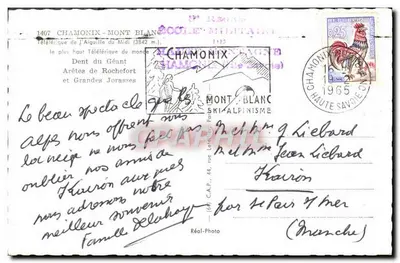 1407 CHAMONIX - MONT BLANC
Téléphérique de l'Aiguille du Midi (3842 m).
le plus haut Téléférique du monde
Dent du Géant
Arêtes de Rochefort
et Grandes Jorasses
ECOLE MILITAIRE
CHAMONIX
MONT-BLANC
SKI-ALPINISME
CHAMONIX
1965
HAUTE SAVOIE
Le beau spectacle que les
Alpes nous offrent sous
la neige ne nous fait pas
oublier nos amis de
Kairon aux quels
nous adressons notre
meilleur souvenir
Famille Delahaye
Met Mme G Liebard
et Mme Jean Liebard
Kairon
par St Pair s/ Mer
(Manche)
Réal-Photo